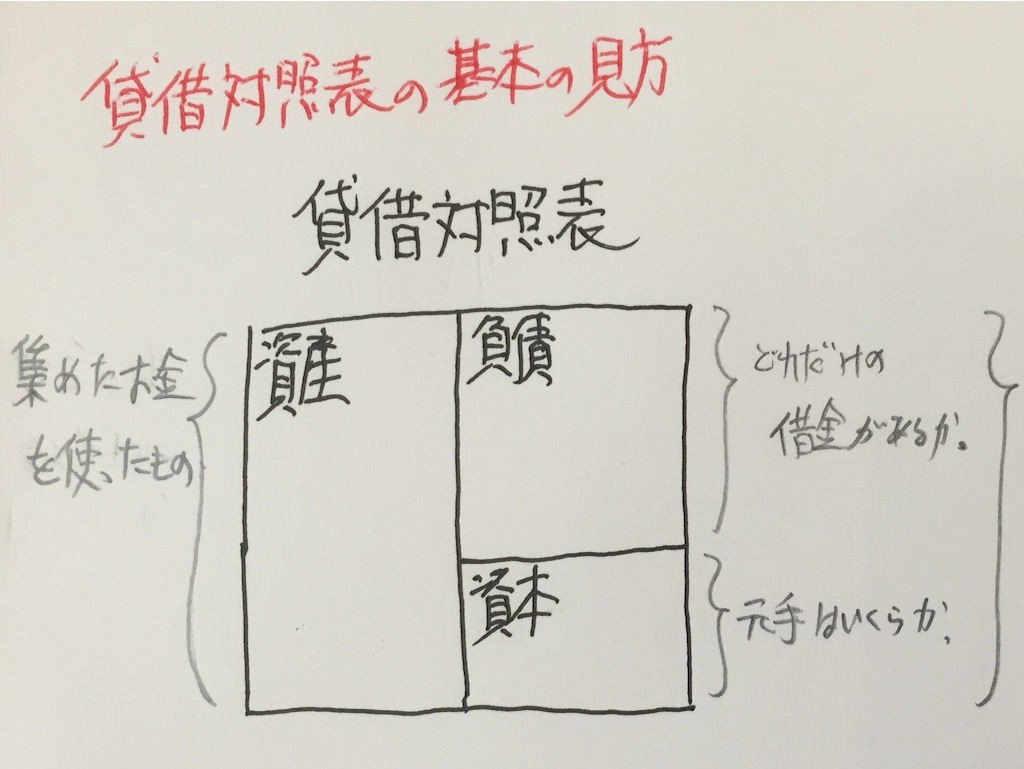 貸借対照表の基本の見方
貸借対照表
集めたお金
を使ったもの
資産
負債
どれだけの
借金があるか。
資本
元手はいくらか、